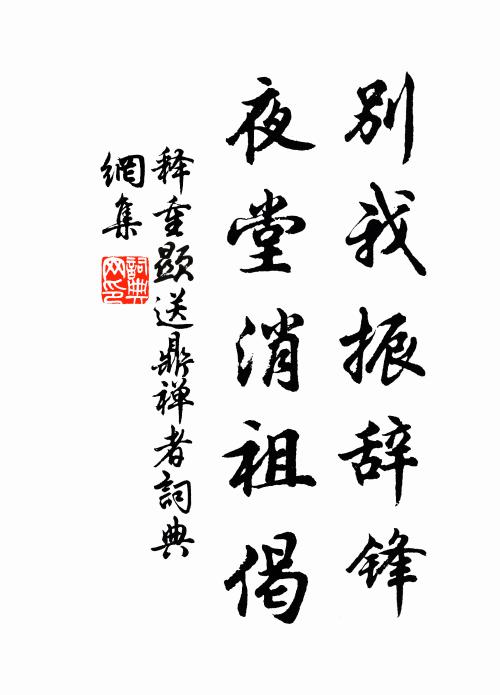 别我振辞锋
夜堂消祖偈
释重显送鼎禅者詞典
網集
詞典網印